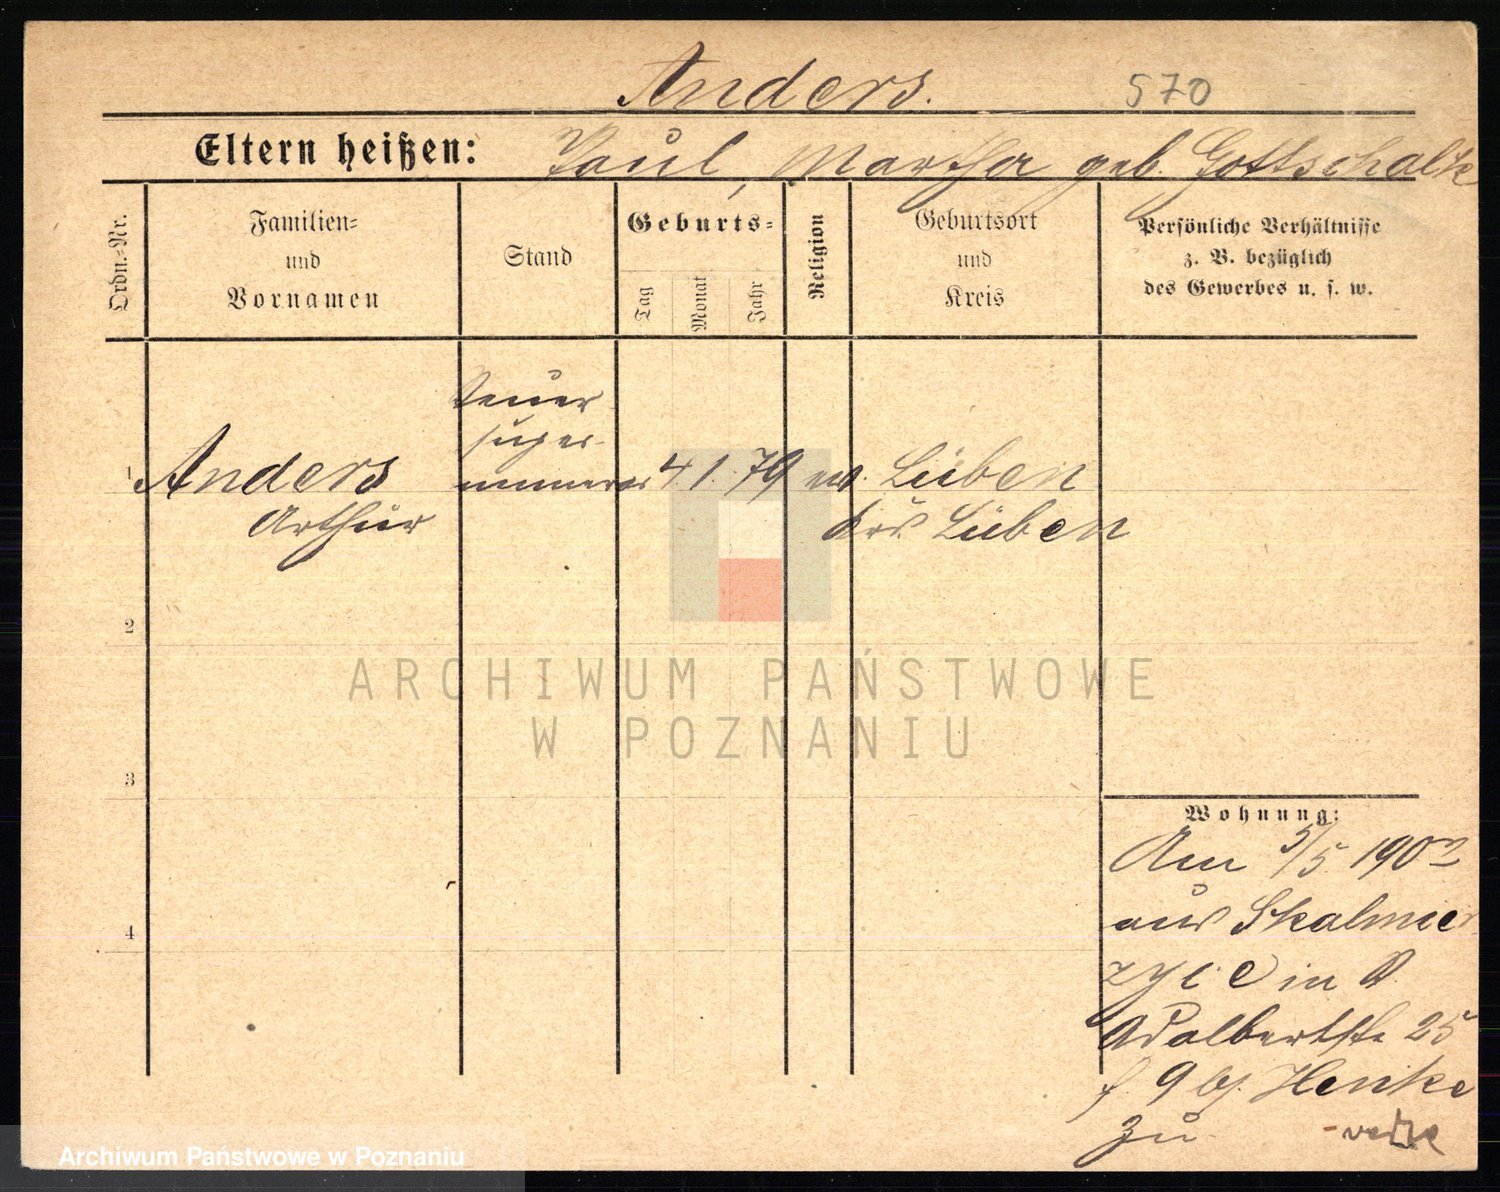 Anders. 570
Eltern heißen: Paul, Martha geb. Gottschalk
Ordn.-Nr.
Familien-
und
Vornamen
Stand
Geburts-
Tag
Monat
Jahr
Religion
Geburtsort
und
Kreis
Persönliche Verhältnisse
z. B. bezüglich
des Gewerbes u. s. w.
Steuer
super-
1 Anders numerar 4. 1. 79 ev. Lüben
Arthur Krs. Lüben
2
3
4
ARCHIWUM PAŃSTWOWE
W POZNANIU
Wohnung:
Am 5/5 1902
aus Skalmier
zyce in
Adalbertstr 25
9 bei Henke
zu
Archiwum Państwowe w Poznaniu